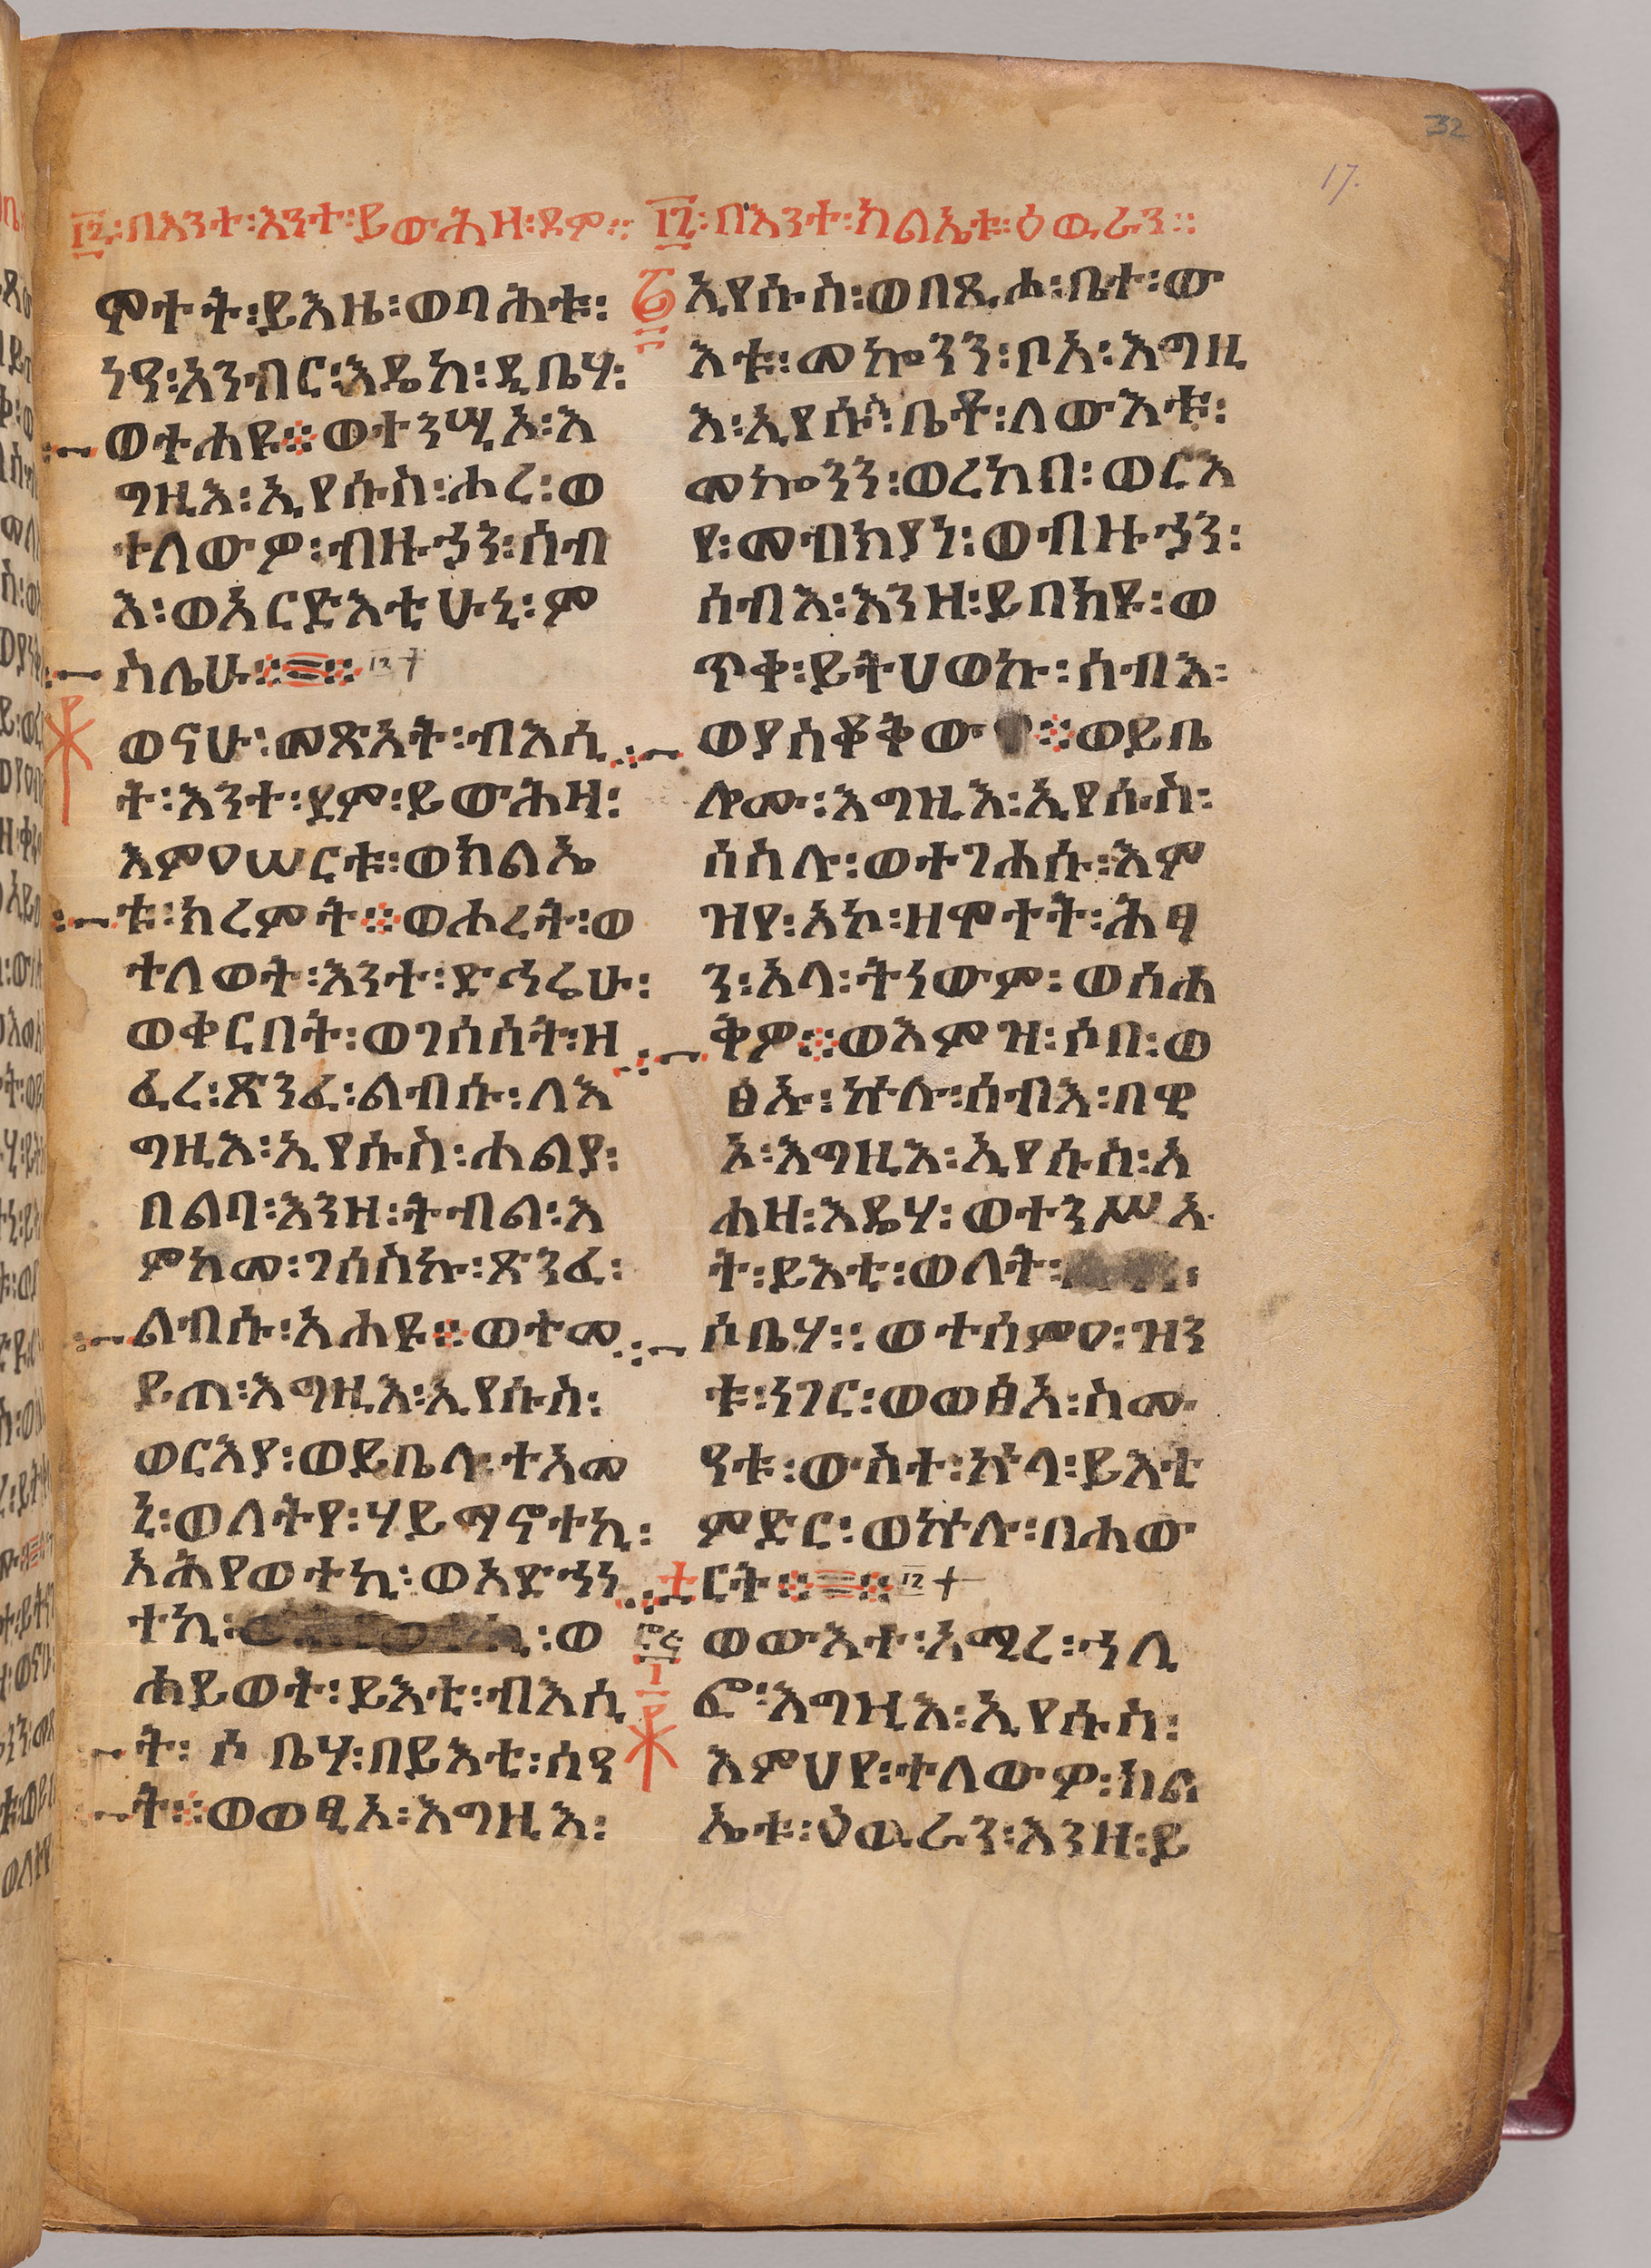 ፲፪፡በእንተ፡እንተ፡ይውሕዘ፡ደም።
ሞተት፡ይእዜ፡ወባሕቱ፡
ነዓ፡አንብር፡እዴከ፡ዲቤሃ፡
ወተሐዩ።ወተንሢኦ፡እ
ግዚእ፡ኢየሱስ፡ሖረ፡ወ
ተለውዎ፡ብዙኃን፡ሰብ
እ፡ወአርድእቲሁኒ፡ም
ስሌሁ።
ወናሁ፡መጽአት፡ብእሲ
ት፡እንተ፡ደም፡ይውሕዛ፡
እምዐሠርቱ፡ወክልኤ
ቱ፡ክረምት።ወሖረት፡ወ
ተለወት፡እንተ፡ድኅሬሁ፡
ወቀርበት፡ወገሰሰት፡ዘ
ፈረ፡ጽንፈ፡ልብሱ፡ለእ
ግዚእ፡ኢየሱስ፡ሐልያ፡
በልባ፡እንዘ፡ትብል፡እ
ምከመ፡ገሰስኩ፡ጽንፈ፡
ልብሱ፡አሐዩ።ወተመ
ይጠ፡እግዚእ፡ኢየሱስ፡
ወርእያ፡ወይቤላ፡ተአመ
ኒ፡ወለትየ፡ሃይማኖተኪ፡
አሕየወተኪ፡ወአድኅነ
ተኪ፡ ፡ወ
ሐይወት፡ይእቲ፡ብእሲ
ት፡ሶቤሃ፡በይእቲ፡ሰዓ
ት።ወወፂኦ፡እግዚእ፡
፲፫፡በእንተ፡ክልኤቱ፡ዕዉራን።
ኢየሱስ፡ወበጺሖ፡ቤተ፡ው
እቱ፡መኰንን፡ቦአ፡እግዚ
እ፡ኢየሱስ፡ቤቶ፡ለውእቱ፡
መኰንን፡ወረከበ፡ወርእ
የ፡መብክያነ፡ወብዙኃን፡
ሰብእ፡እንዘ፡ይበክዩ፡ወ
ጥቀ፡ይትሀወኩ፡ሰብእ፡
ወያስቆቅው ።ወይቤ
ሎሙ፡እግዚእ፡ኢየሱስ፡
ሰስሉ፡ወተገሐሱ፡እም
ዝየ፡አኮ፡ዘሞተት፡ሕፃ
ን፡አላ፡ትነውም፡ወሰሐ
ቅዎ።ወእምዝ፡ሶበ፡ወ
ፅኡ፡ኵሉ፡ሰብእ፡በዊ
ኦ፡እግዚእ፡ኢየሱስ፡አ
ሐዘ፡እዴሃ፡ወተንሥአ
ት፡ይእቲ፡ወለት፡ ፡
ሶቤሃ፡፡ወተሰምዐ፡ዝን
ቱ፡ነገር፡ወወፅአ፡ስሙ
ዓቱ፡ውስተ፡ኵላ፡ይእቲ
ምድር፡ወኵሉ፡በሐው
ርት።
ወውእተ፡አሚረ፡ኅሊ
ፎ፡እግዚእ፡ኢየሱስ፡
እምህየ፡ተለውዎ፡ክል
ኤቱ፡ዕዉራን፡እንዘ፡ይ
32
17.